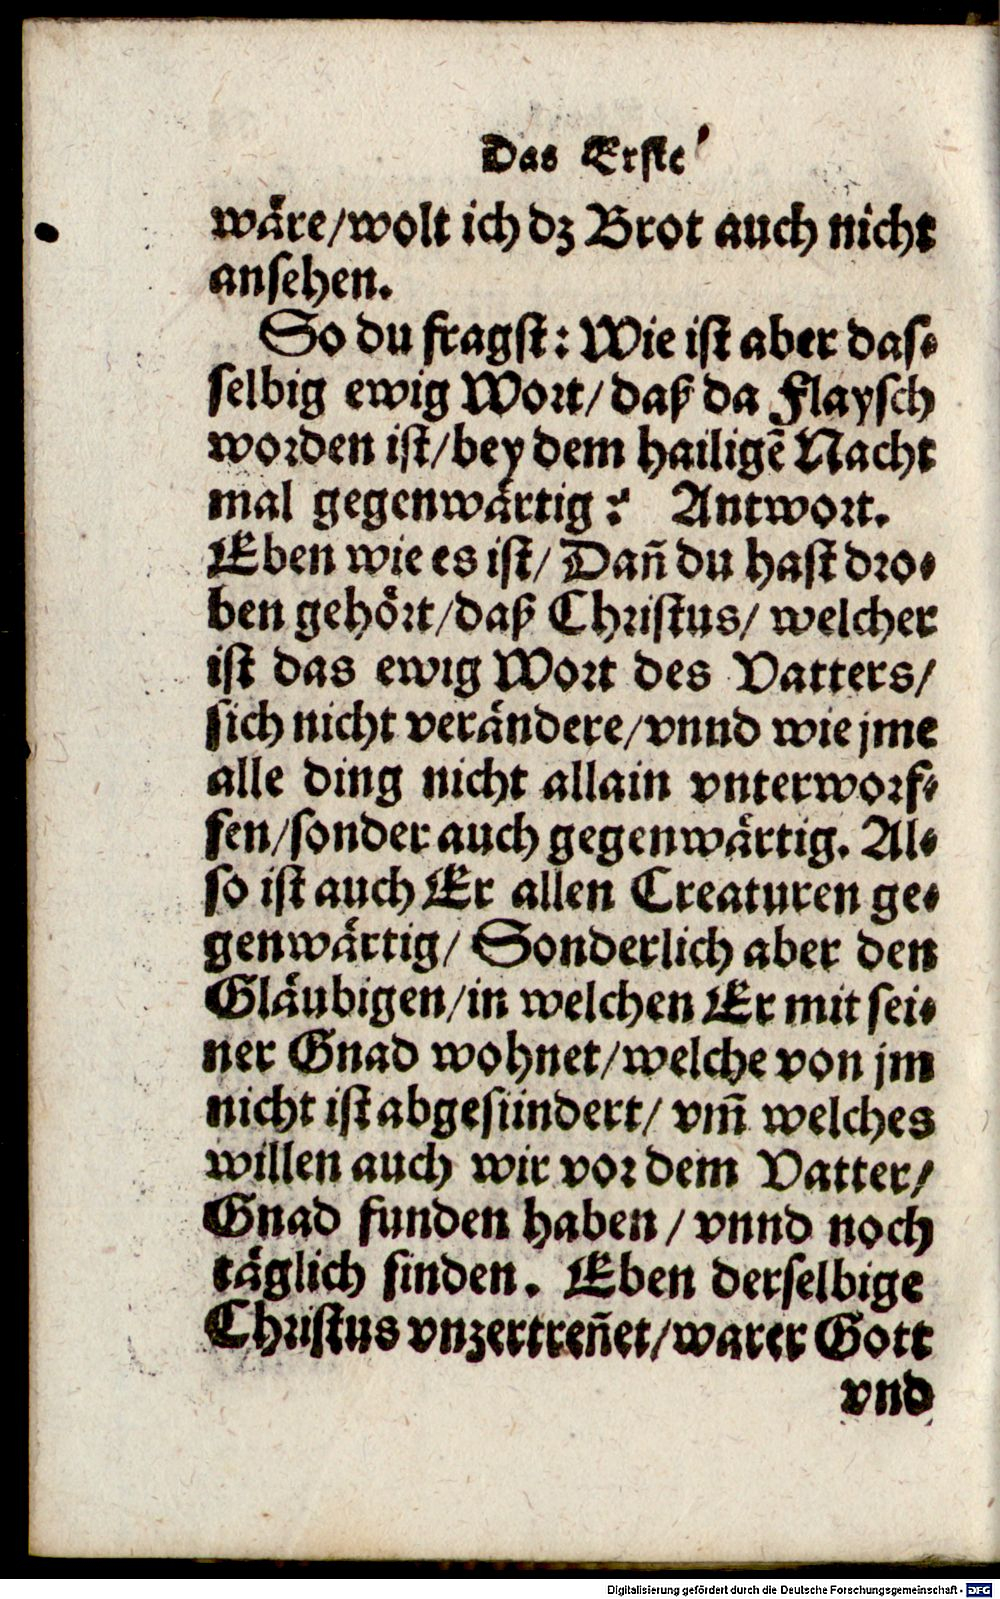 Das Erste
wäre/wolt ich dz Brot auch nicht
ansehen.
So du fragst: Wie ist aber das-
selbig ewig Wort/daß da Flaysch
worden ist/bey dem hailigē Nacht
mal gegenwärtig? Antwort.
Eben wie es ist/Dañ du hast dro-
ben gehört/daß Christus/welcher
ist das ewig Wort des Vatters/
sich nicht verändere/vnnd wie jme
alle ding nicht allain vnterworf-
fen/sonder auch gegenwärtig. Al-
so ist auch Er allen Creaturen ge-
genwärtig/Sonderlich aber den
Gläubigen/in welchen Er mit sei-
ner Gnad wohnet/welche von jm
nicht ist abgesündert/vm̃ welches
willen auch wir vor dem Vatter/
Gnad funden haben/vnnd noch
täglich finden. Eben derselbige
Christus vnzertreñet/warer Gott
vnd
Digitalisierung gefördert durch die Deutsche Forschungsgemeinschaft - DFG